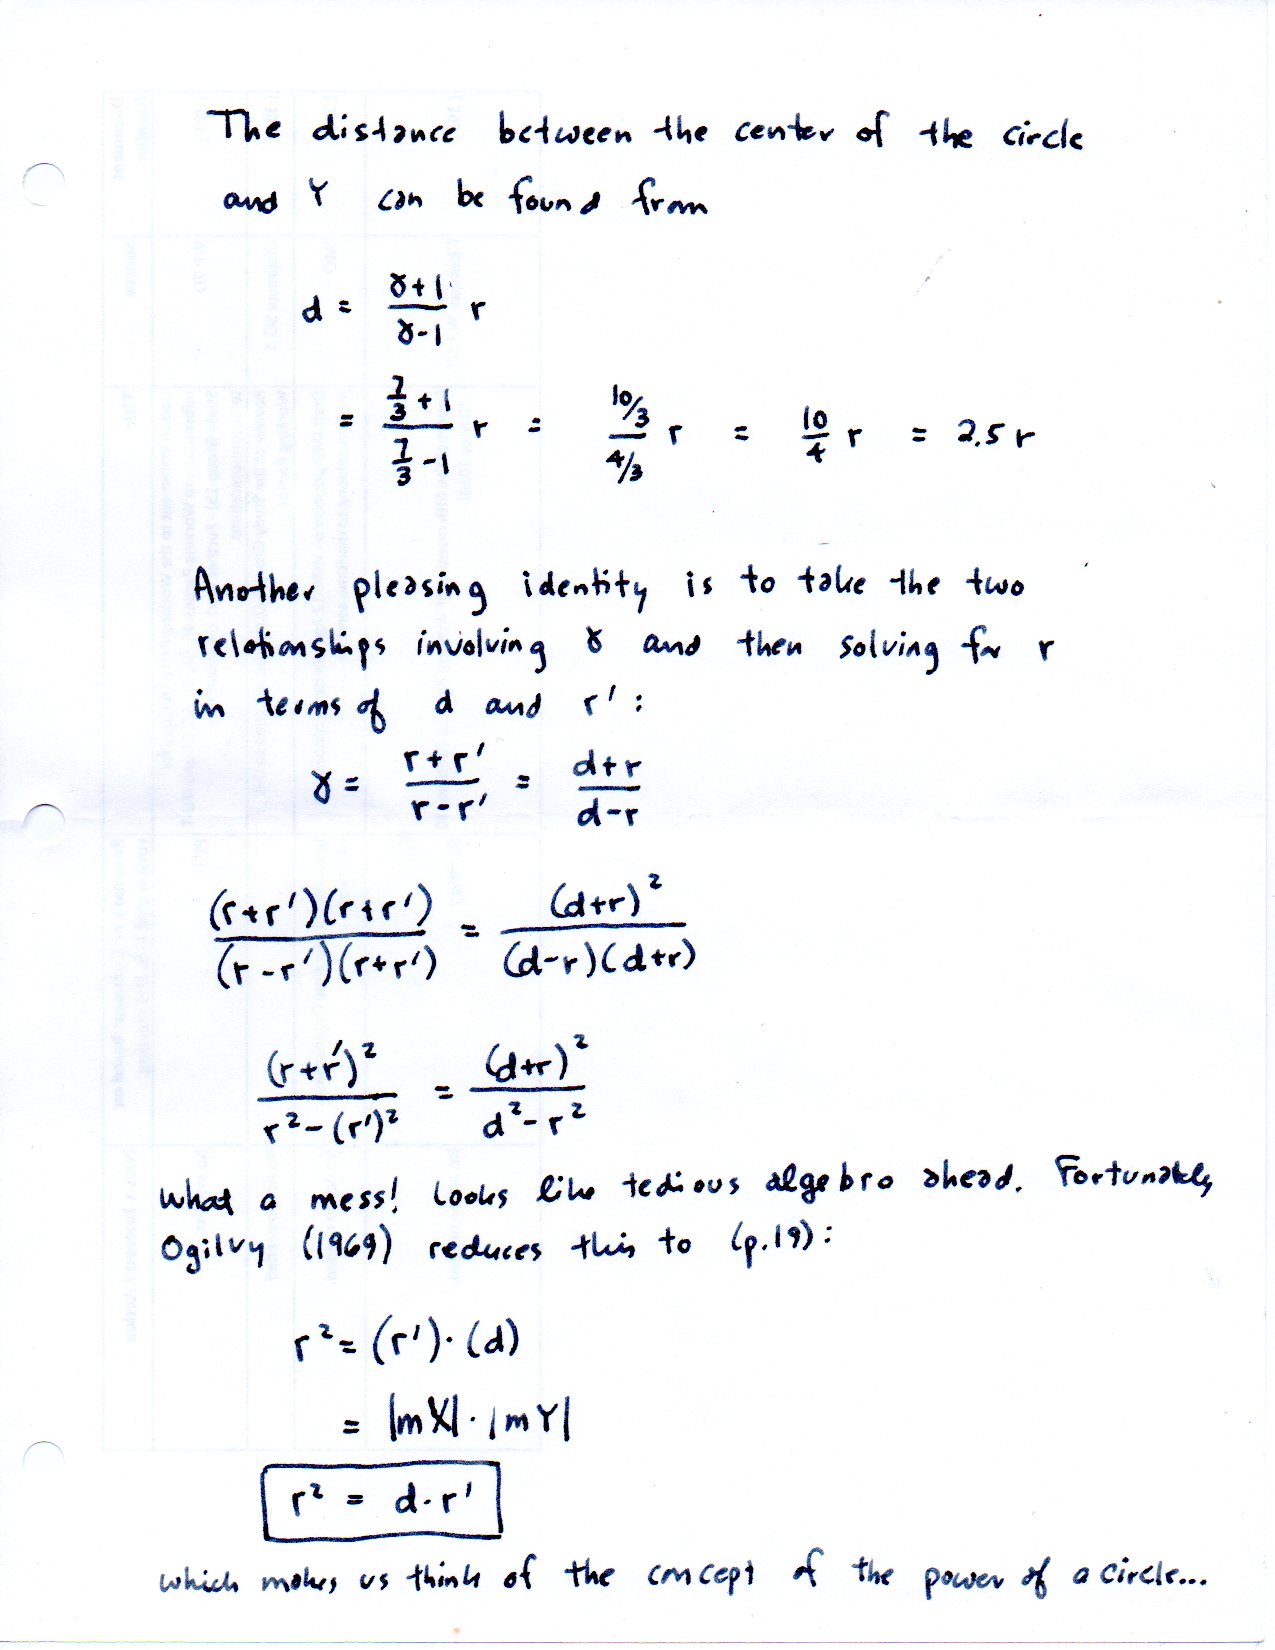 The distance between the center of the circle
and Y can be found from
d = (γ+1)/(γ-1) r
= (7/3 + 1)/(7/3 - 1) r = (10/3)/(4/3) r = 10/4 r = 2.5 r
Another pleasing identity is to take the two
relationships involving γ and then solving for r
in terms of d and r':
γ = (r+r')/(r-r') = (d+r)/(d-r)
(r+r')(r+r')/(r-r')(r+r') = (d+r)²/(d-r)(d+r)
(r+r')²/(r²-(r')²) = (d+r)²/(d²-r²)
What a mess! Looks like tedious algebra ahead. Fortunately
Ogilvy (1969) reduces this to (p.19):
r² = (r')·(d)
= |mX|·|mY|
r² = d·r'
which makes us think of the concept of the power of a circle...